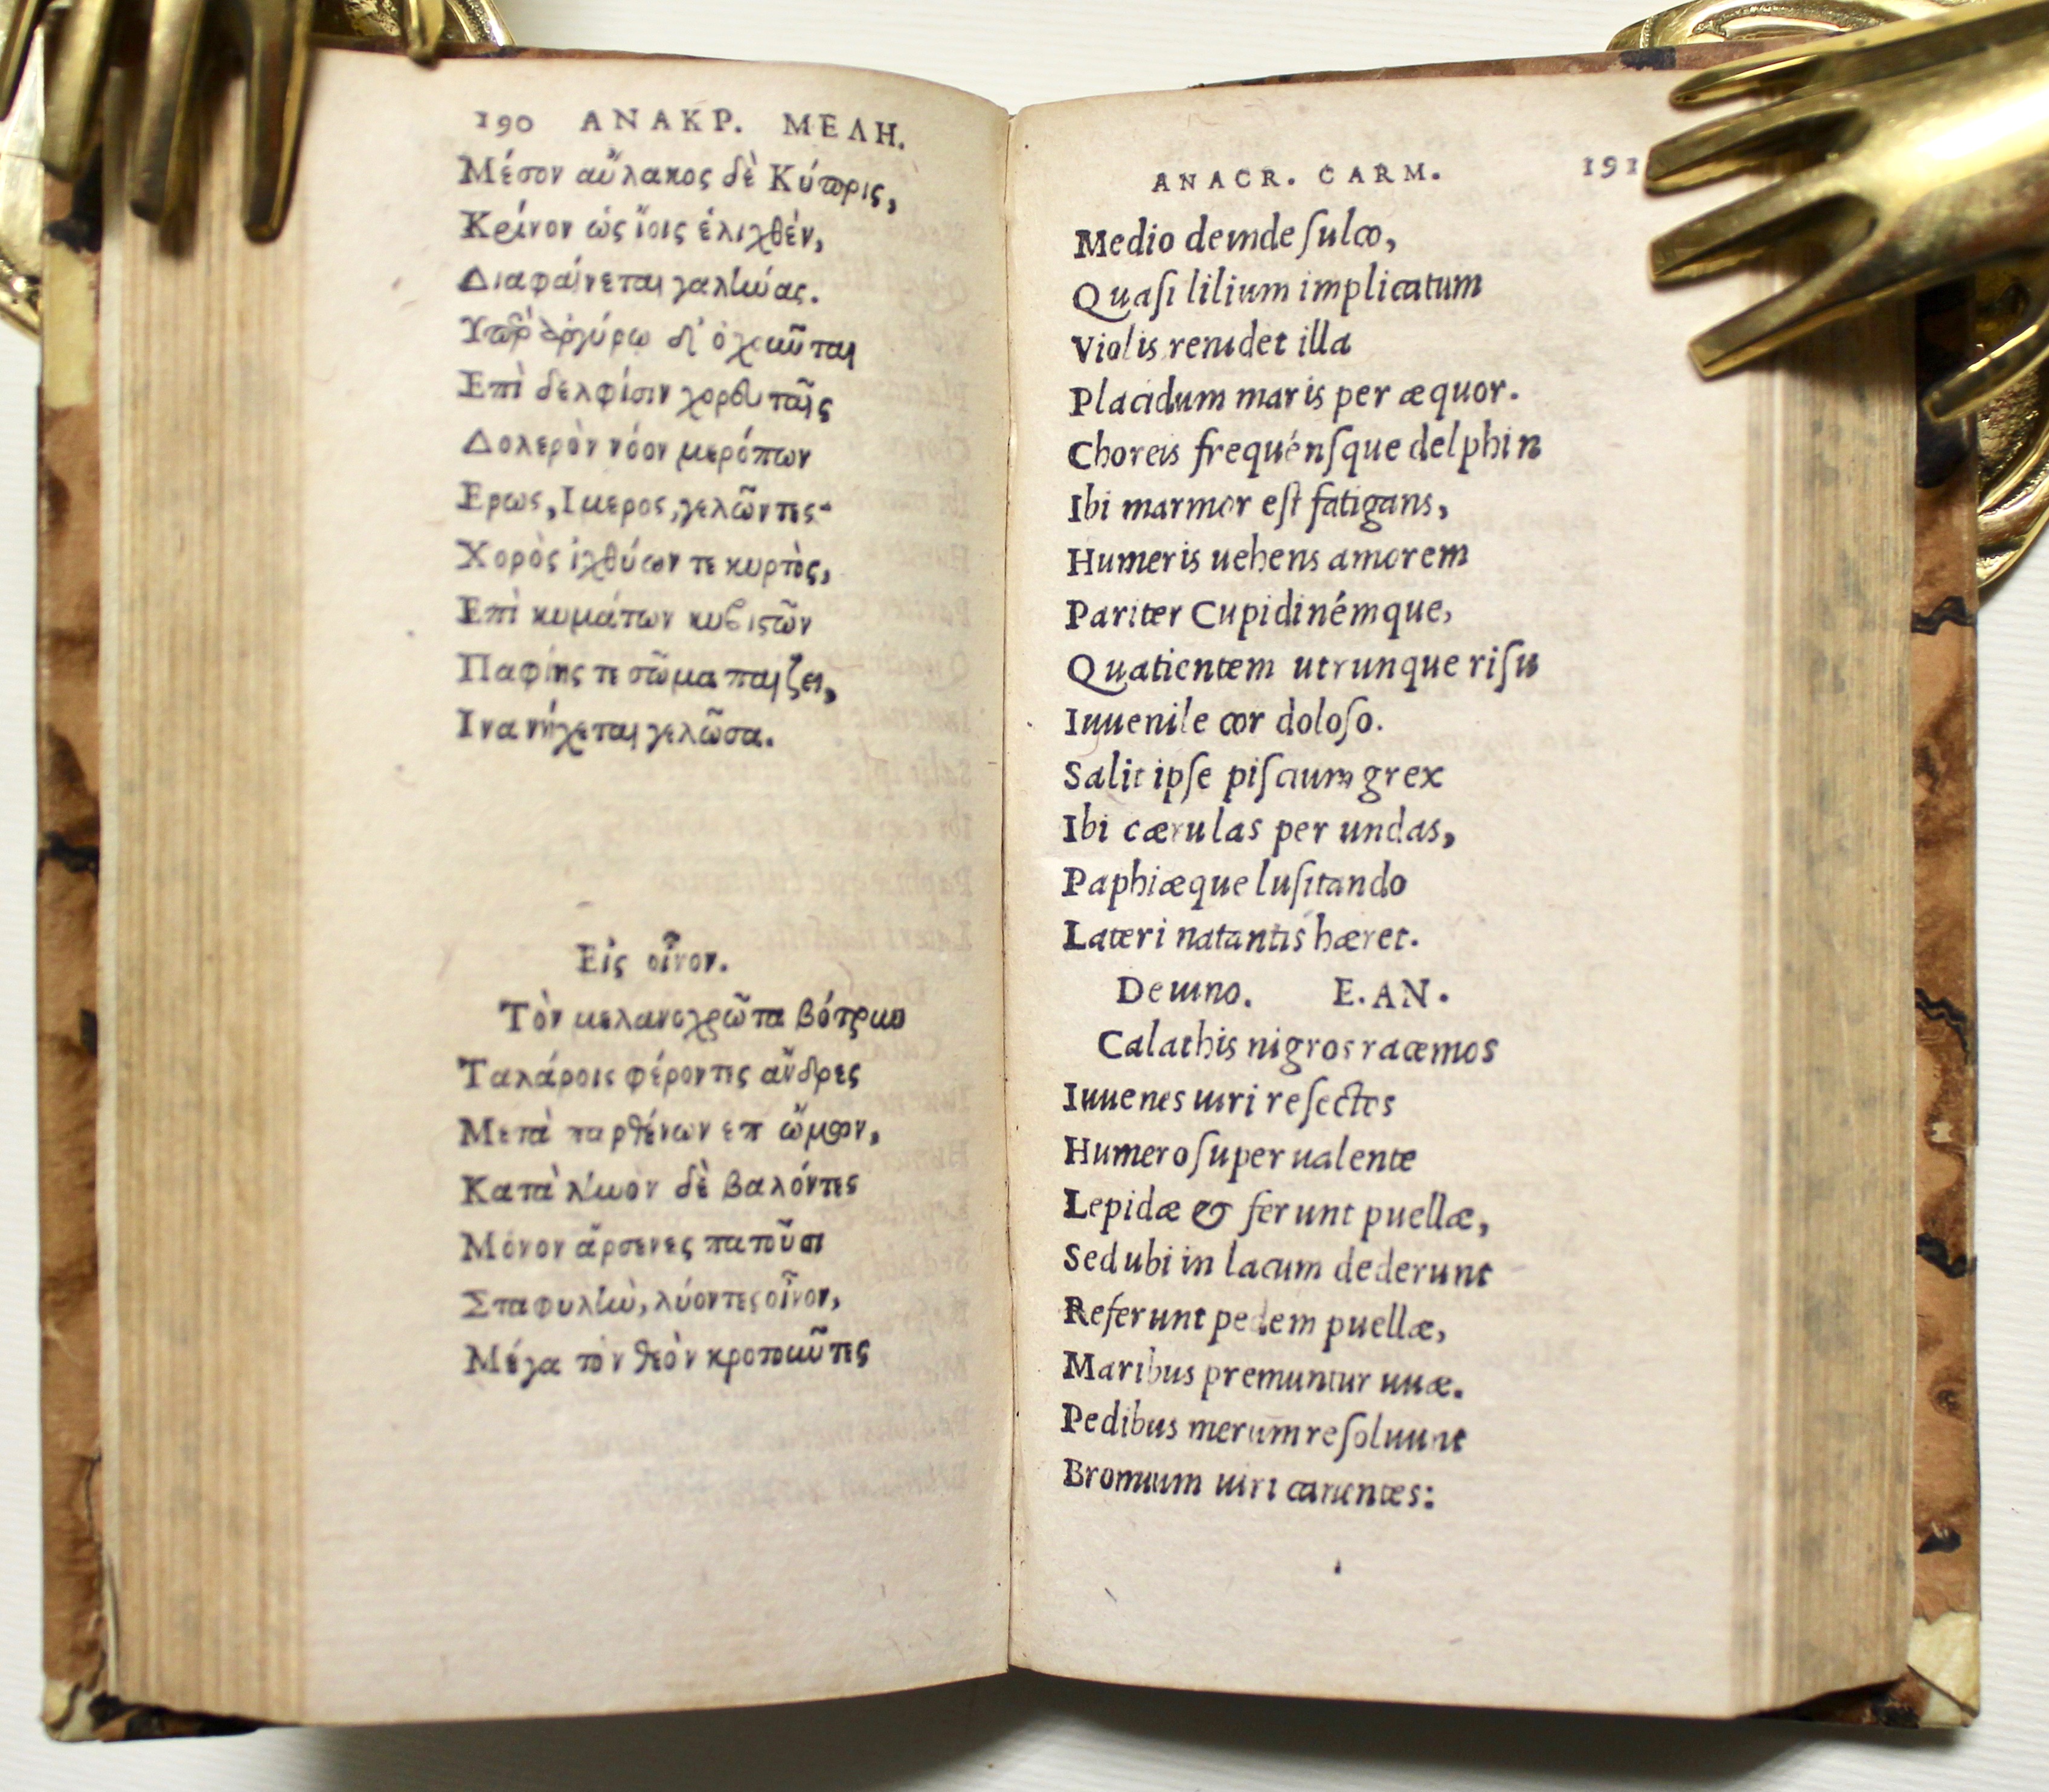 190 ΑΝΑΚΡ. ΜΕΛΗ.
Μέσον αὔλακος δὲ Κύπρις,
Κρίνον ὡς ἴοις ἑλιχθέν,
Διαφαίνεται γαλήνας.
Ὑπὲρ ἀργύρῳ δ' ὀχοῦνται
Επὶ δελφίσιν χορευταῖς
Δολερὸν νόον μερόπων
Ερως, Ιμερος, γελῶντες.
Χορὸς ἰχθύων τε κυρτὸς,
Επὶ κυμάτων κυβιστῶν
Παφίης τε σῶμα παίζει,
Ινα νήχεται γελῶσα.
Εἰς οἶνον.
Τὸν μελανοχρῶτα βότρυν
Ταλάροις φέροντες ἄνδρες
Μετὰ παρθένων επ ὤμων,
Κατὰ ληνὸν δὲ βαλόντες
Μόνον ἄρσενες πατοῦσι
Σταφυλὴν, λύοντες οἶνον,
Μέγα τὸν θεὸν κροτοῦντες
ANACR. CARM. 191
Medio deinde ſulco,
Quaſi lilium implicatum
Violis renidet illa
Placidum maris per æquor.
Choreis frequénſque delphin
Ibi marmor eſt fatigans,
Humeris uehens amorem
Pariter Cupidinémque,
Quatientem utrunque riſu
Iuuenile cor doloſo.
Salit ipſe piſcium grex
Ibi cærulas per undas,
Paphiæque luſitando
Lateri natantis hæret.
De uino. E. AN.
Calathis nigros racemos
Iuuenes uiri reſectos
Humero ſuper ualente
Lepidæ & ferunt puellæ,
Sed ubi in lacum dederunt
Referunt pedem puellæ,
Maribus premuntur uuæ.
Pedibus merum reſoluunt
Bromium uiri canentes: